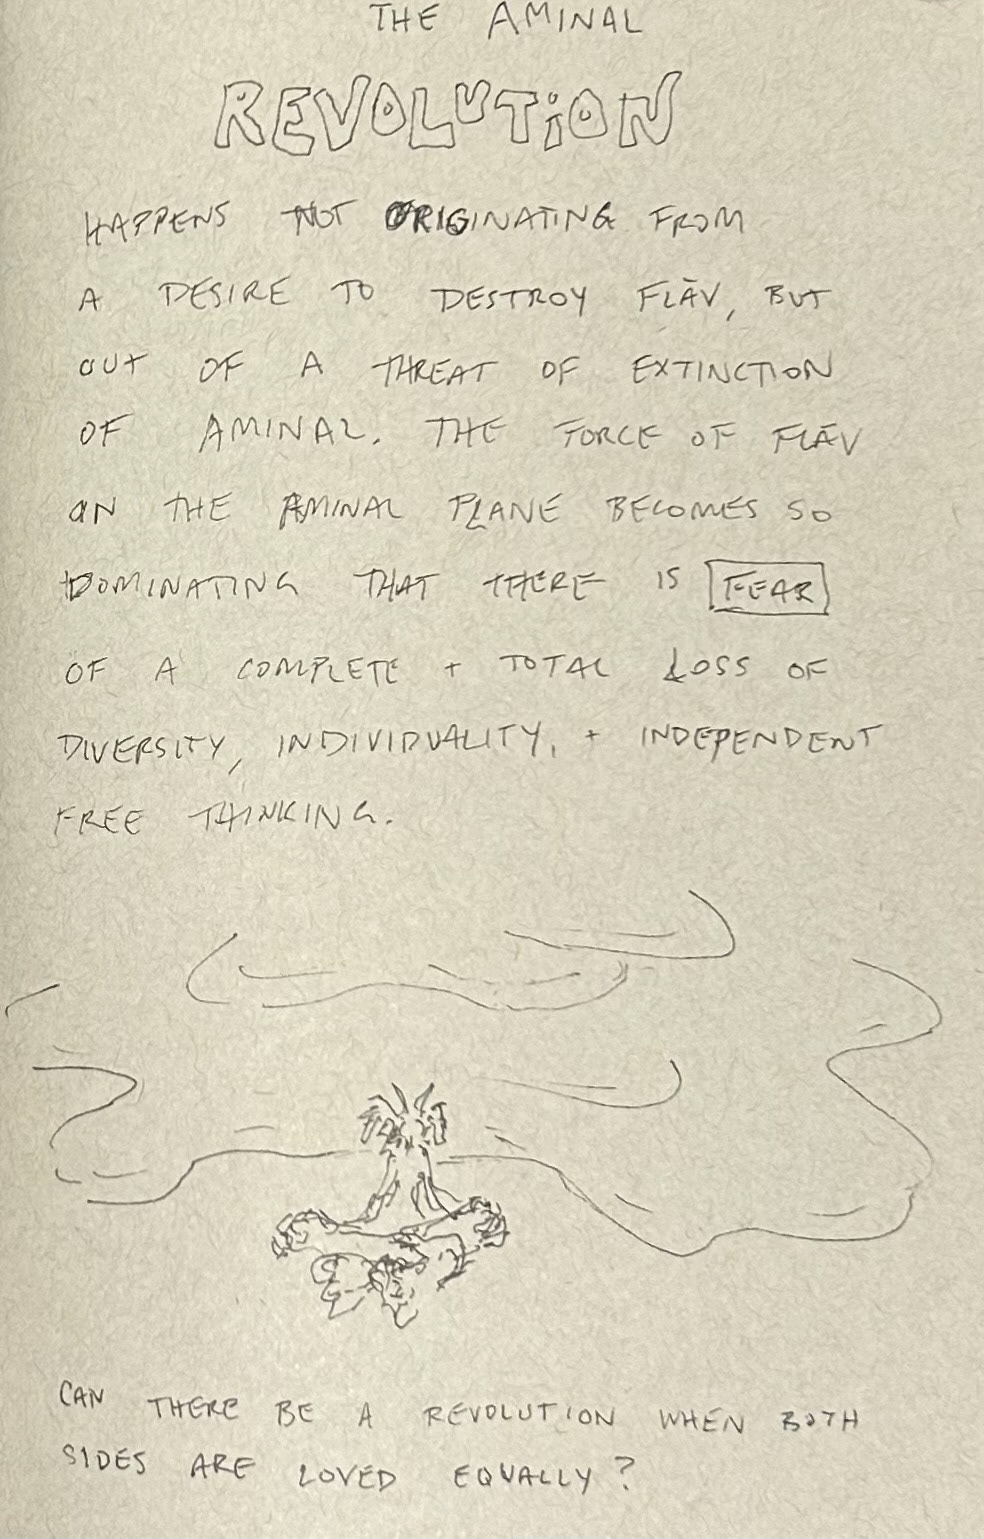 THE AMINAL
REVOLUTiON
HAPPENS NOT ORIGINATING FROM
A DESIRE TO DESTROY FLĀV, BUT
OUT OF A THREAT OF EXTINCTION
OF AMINAL. THE FORCE OF FLĀV
ON THE AMINAL PLANE BECOMES SO
DOMINATING THAT THERE IS FEAR
OF A COMPLETE + TOTAL LOSS OF
DIVERSITY, INDIVIDUALITY, + INDEPENDENT
FREE THINKING.
CAN THERE BE A REVOLUTION WHEN BOTH
SIDES ARE LOVED EQUALLY?